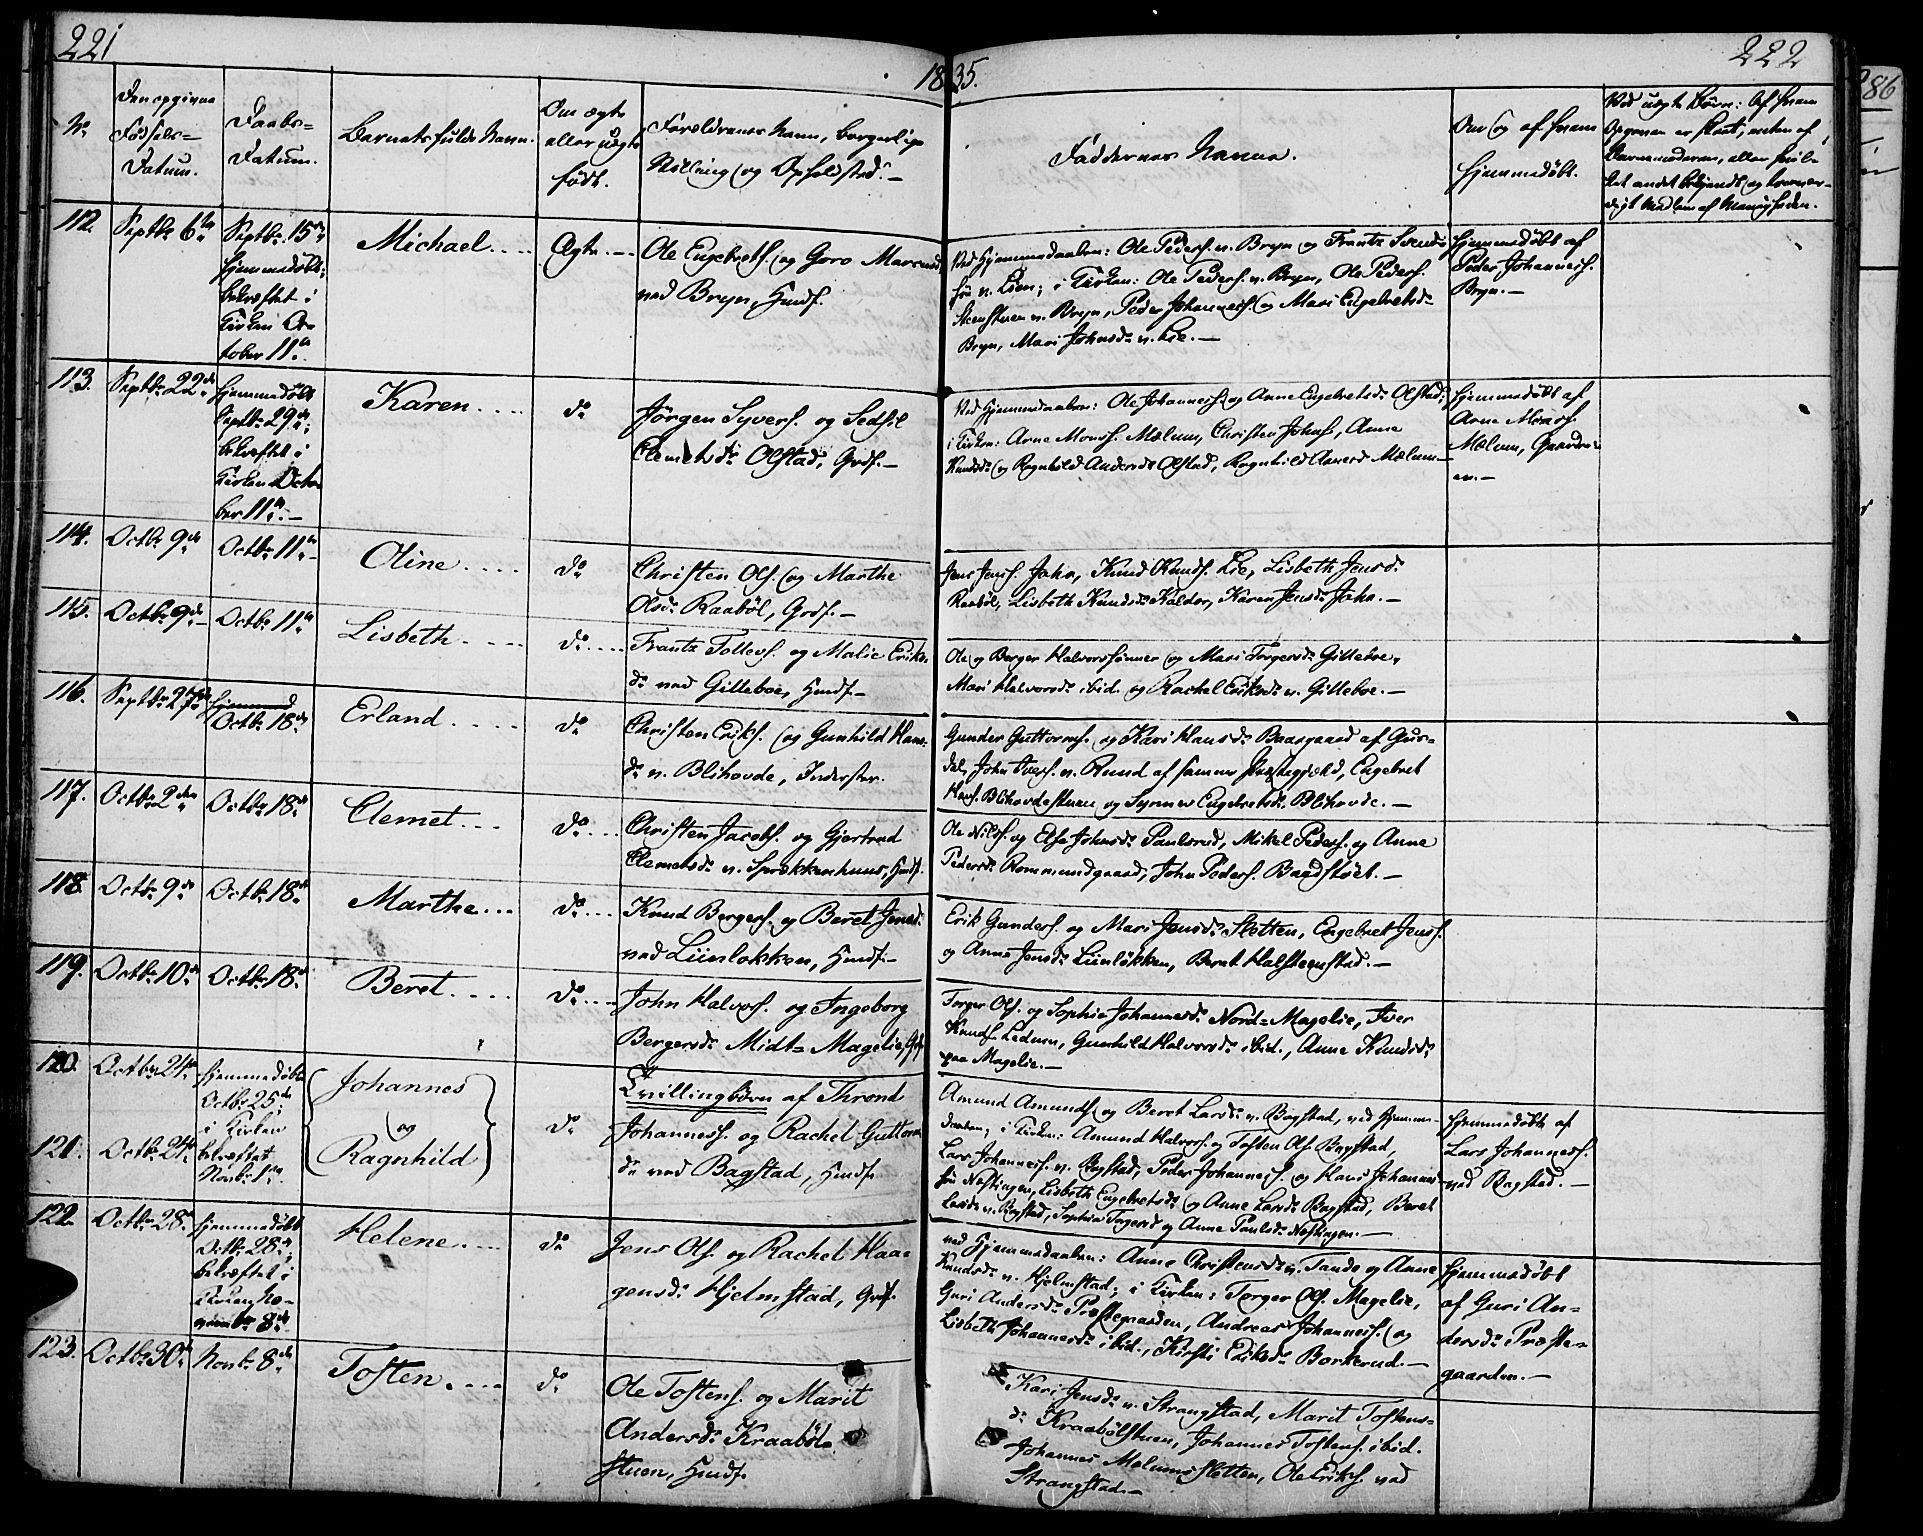 221
1835.
222
286
No
Den opgivne Fødsels=Datum.
Daabs=Datum.
Barnets fulde Navn.
Om ægte eller uægte født.
Forældrenes Navn, borgerlige Stilling og Opholdsted.—
Faddernes Navne.
Om og af hvem hjemmedøbt.
Ved uægte Børn: Af hvem Opgaven er skeet, enten af Barnemoderen, eller hvilket andet bekjendt og troværdigt Medlem af Menigheden.
112. Septbr 6te
Septbr. 15de
hjemmedøbt;
bekræftet i
Kirken Oc-
tober 11te
Michael....
Ægte.—
Ole Engebrets. og Goro
ved Bryn, Huusf.
Ved Hjemmedaaben: Ole Peders. v. Bryn og Frantz
v. Lien; i Kirken: Ole Peders. v. Bryn, Ole Peders.
Steenstuen v. Bryn, Peder Johanness. og Mari Engebretsdr
Bryn, Mari Johnsdr v. Lie.—
Hjemmedøbt af
Peder Johanness.
Bryn.—
113. Septbr 22de
hjemmedøbt
Septbr 29de;
bekræftet i
Kirken Octo-
ber 11te.—
Karen....
do
Jörgen Syvers. og Sedsil
Clemetsdr Olstad, Grdf.—
Ved Hjemmedaaben: Ole Johanness. og Anne Engebretsdr Olstad;
i Kirken: Arne Monss. Mælum, Christen Johns., Anne
Knudsdr og Ragnhild Andersdr Olstad, Ragnhild Mælum—
Hjemmedøbt af
Arne Monss.
Mælum, Gaardm-
en.—
114. Octbr 9de
Octbr 11te—
Oline....
do
Christen Ols. og Marthe
Olsdr Raabøl, Grdf.—
Jens Jenss. Jahr, Knud Knuds. Lie, Lisbeth Jensdr
Raabøl, Lisbeth Knudsdr Kalder, Karen Jensdr Jahr.—
115. Octbr 9de—
Octbr 11te
Lisbeth....
do....
Frantz Tollevs. og Malie Eriks-
dr ved Gilleboe, Huusf.—
Ole og Berger Halvorssønner og Mari Torgersdr Gilleboe,
Mari Halvorsdr ibid. og Rachel Eriksdr v. Gilleboe.—
116. Septbr 27de
Octbr 18de
Erland....
do
Christen Eriks. og Gunhild Hans-
dr v. Blihovde, Inderster.
Gunder Guttorms. og Kari Hansdr Baasgaard af Gus-
dal, John Ivers. v. Rund af samme Præstegjæld, Engebret
Hans. Blihovdestuen og Synnev Engebretsdr Blihovde.—
117. Octbr 2den
Octbr 18de
Clemet....
do....
Christen Jacobs. og Gjertrud
Clemetsdr v. Sprækkenhuus, Huusf.
Ole Nilss. og Else Johnsdr Paulsrud, Mikel Peders. og Anne
Pedersdr Rommundgaard, John Peders. Baadstöet.—
118. Octbr 9de
Octbr 18de
Marthe...
do...
Knud Bergers. og Beret Jensdr
ved Liinløkken, Huusf.—
Erik Gunders. og Mari Jensdr Sletten, Engebret Jenss.
og Anne Jensdr Liinløkken, Beret Halsteenstad.—
119. Octbr 10de
Octbr 18de
Beret....
do....
John Halvors. og Ingeborg
Bergersdr Midt=Magelie, Grdf.
Torger Ols. og Sophie Johannesdr Nord=Magelie, Iver
Knuds. Ledum, Gunhild Halvorsdr ibid., Anne Knudsdr
paa Magelie.—
120. Octbr 24de
121. Octbr 24de
hjemmedøbte
Octbr 25de;
i Kirken
bekræftet
Novbr 1ste.
Johannes
og
Ragnhild
do
Tvillingbørn af Thrond
Johanness. og Rachel Guttorms-
dr ved Bagstad, Huusf.
Amund Amunds. og Beret Larsdr v. Bagstad, ved Hjemme-
daaben; i Kirken: Amund Halvors. og Tosten Ols. Bagstad,
Lars Johanness. v. Bagstad, Peder Johanness. og Kari Johannes-
dr Nostingen, Lisbeth Engebretsdr og Anne Larsdr Bagstad, Beret
Larsdr v. Bagstad, Sophie Torgersd og Anne Paulsdr Nostingen.—
Hjemmedøbte af
Lars Johanness.
ved Bagstad.—
122. Octbr 28de
hjemmedøbt
Octbr 28de;
bekræftet i
Kirken No-
vember 8de
Helene....
do
Jens Ols. og Rachel Haa-
gensdr Hjelmstad, Grdf.
ved Hjemmedaaben: Anne Christensdr v. Tande og Anne
Knudsdr v. Hjelmstad; i Kirken: Torger Ols. Magelie,
Guri Andersdr Præstegaarden, Andreas Johanness. og
Lisbeth Johannesdr ibid., Kirsti Eriksdr Borkerud.—
Hjemmedøbt
af Guri An-
dersdr Præste-
gaarden.—
123. Octbr 30te
Novbr 8de
Tosten....
do
Ole Tostens. og Marit
Andersdr Kraabøl-
stuen, Huusf.
Kari Jensdr v. Strangstad, Marit Tostens-
dr Kraabølstuen, Johannes Tostens. ibid.
Johannes Mælumsletten, Ole Eriks. ved
Strangstad.—